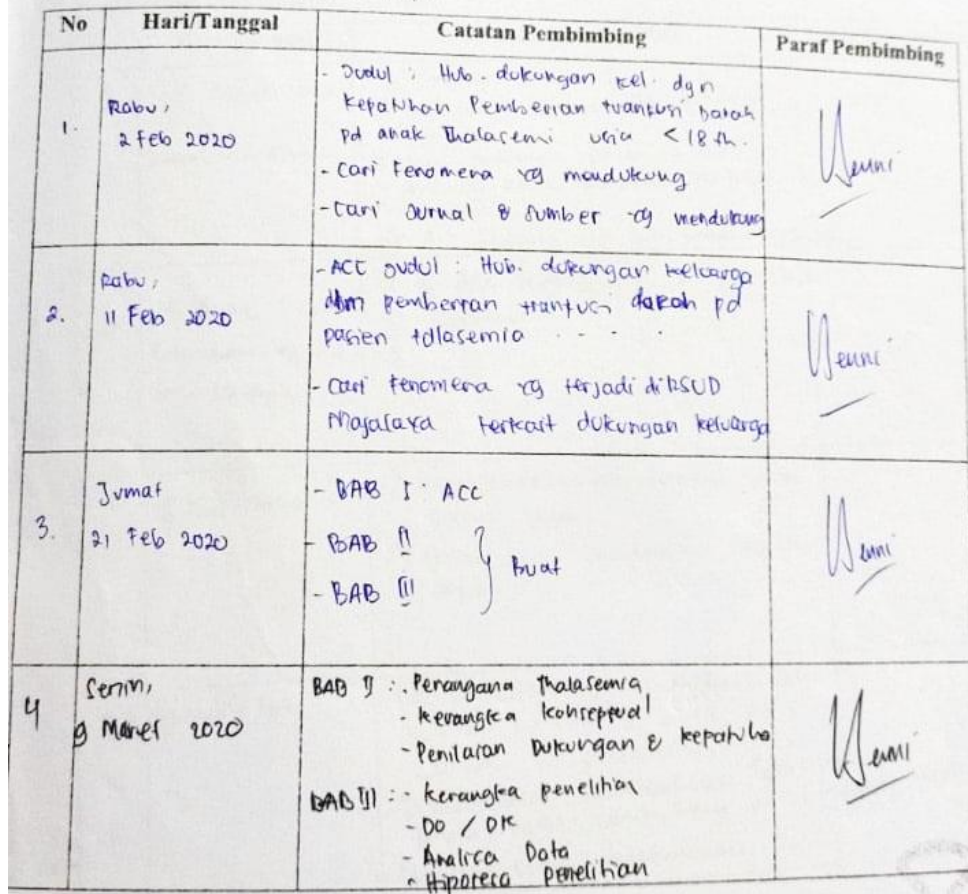 No Hari/Tanggal Catatan Pembimbing Paraf Pembimbing
1. Rabu,
2 Feb 2020
- Judul : Hub. dukungan kel. dgn
kepatuhan Pemberian tranfusi Darah
pd anak Thalasemi usia < 18 th.
- Cari Fenomena yg mendukung
- Cari Jurnal & Sumber yg mendukung
Henni
2. Rabu,
11 Feb 2020
- ACC Judul : Hub. dukungan keluarga
dlm pemberian tranfusi darah pd
pasien talasemia - - -
- Cari Fenomena yg terjadi di RSUD
Majalaya terkait dukungan keluarga
Henni
3. Jumat
21 Feb 2020
- BAB I : ACC
- BAB II
- BAB III
} Buat
Henni
4 Senin,
9 Maret 2020
BAB II : - Penangana Thalasemia
- kerangka konseptual
- Penilaian Dukungan & kepatuha
BAB III : - kerangka penelitian
- DO / DK
- Analisa Data
- Hipotesa penelitian
Henni